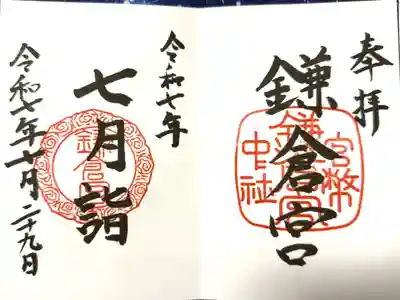 奉拝
鎌倉宮
官幣
中社
鎌倉宮
令和七年
七月詣
鎌倉宮
令和七年七月二十九日